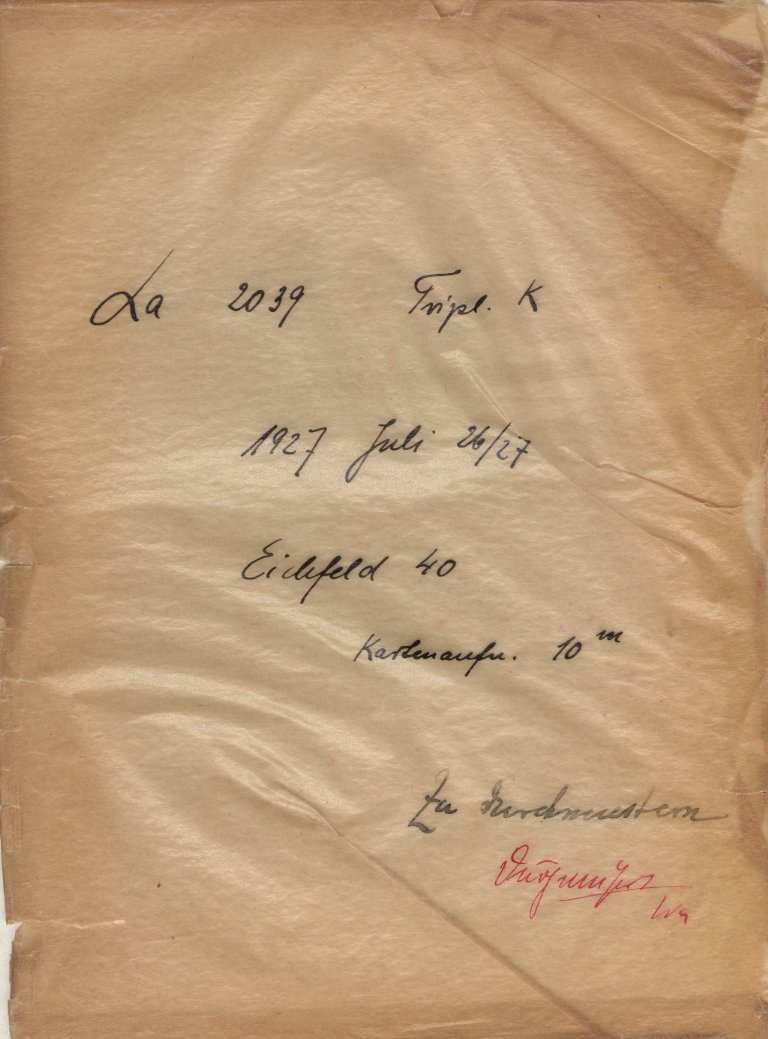 La 2039 Tripl. K
1927 Juli 26/27
Eichfeld 40
Kartenaufn. 10ᵐ
Zu durchmustern
Durchmustert
Wa